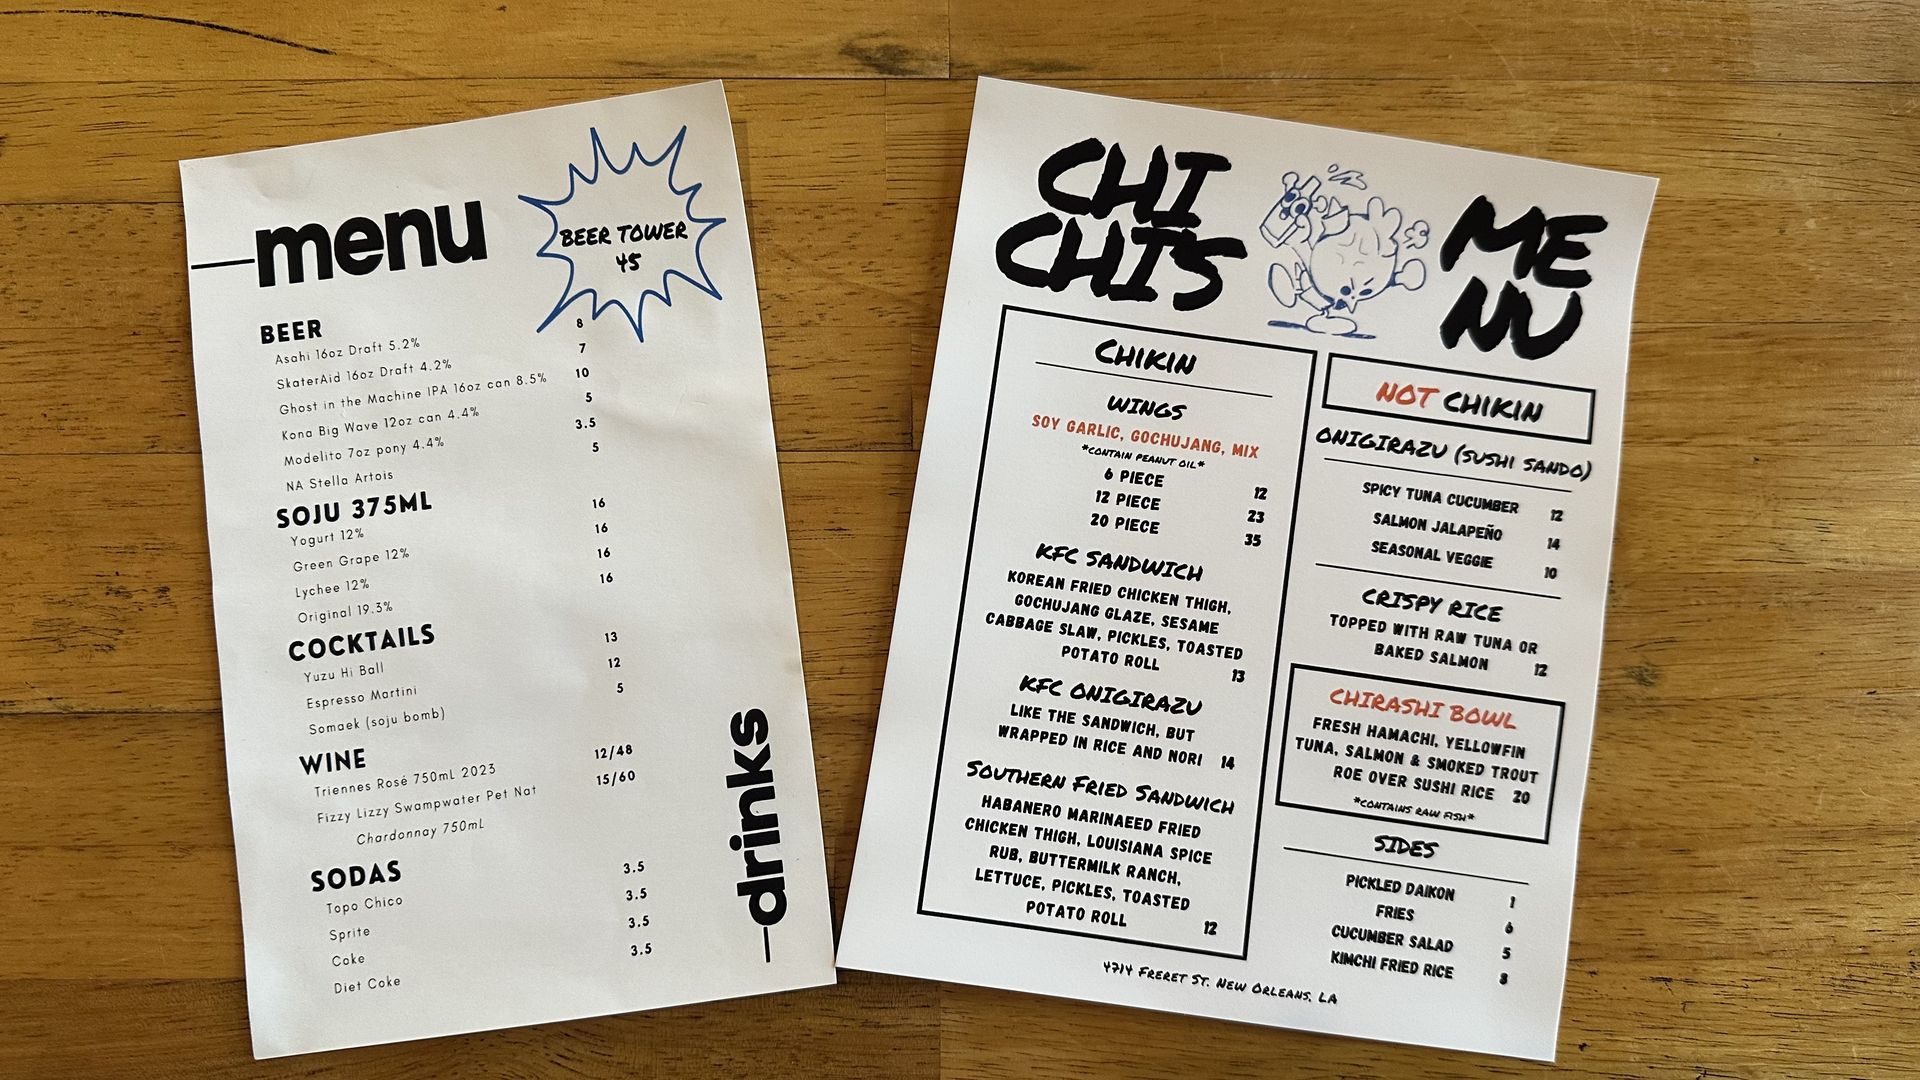 menu
BEER TOWER
45
BEER
Asahi 16oz Draft 5.2% 8
SkaterAid 16oz Draft 4.2% 7
Ghost in the Machine IPA 16oz can 8.5% 10
Kona Big Wave 12oz can 4.4% 5
Modelito 7oz pony 4.4% 3.5
NA Stella Artois 5
SOJU 375ML
Yogurt 12% 16
Green Grape 12% 16
Lychee 12% 16
Original 19.3% 16
COCKTAILS
Yuzu Hi Ball 13
Espresso Martini 12
Somaek (soju bomb) 5
WINE
Triennes Rosé 750mL 2023 12/48
Fizzy Lizzy Swampwater Pet Nat 15/60
Chardonnay 750mL
SODAS
Topo Chico 3.5
Sprite 3.5
Coke 3.5
Diet Coke 3.5
drinks
CHI
CHI'S
ME
NU
CHIKIN
WINGS
SOY GARLIC, GOCHUJANG, MIX
*CONTAIN PEANUT OIL*
6 PIECE 12
12 PIECE 23
20 PIECE 35
KFC SANDWICH
KOREAN FRIED CHICKEN THIGH,
GOCHUJANG GLAZE, SESAME
CABBAGE SLAW, PICKLES, TOASTED
POTATO ROLL 13
KFC ONIGIRAZU
LIKE THE SANDWICH, BUT
WRAPPED IN RICE AND NORI 14
SOUTHERN FRIED SANDWICH
HABANERO MARINAEED FRIED
CHICKEN THIGH, LOUISIANA SPICE
RUB, BUTTERMILK RANCH,
LETTUCE, PICKLES, TOASTED
POTATO ROLL 12
NOT CHIKIN
ONIGIRAZU (SUSHI SANDO)
SPICY TUNA CUCUMBER 12
SALMON JALAPEÑO 14
SEASONAL VEGGIE 10
CRISPY RICE
TOPPED WITH RAW TUNA OR
BAKED SALMON 12
CHIRASHI BOWL
FRESH HAMACHI, YELLOWFIN
TUNA, SALMON & SMOKED TROUT
ROE OVER SUSHI RICE 20
*CONTAINS RAW FISH*
SIDES
PICKLED DAIKON 1
FRIES 6
CUCUMBER SALAD 5
KIMCHI FRIED RICE
4714 FRERET ST. NEW ORLEANS, LA